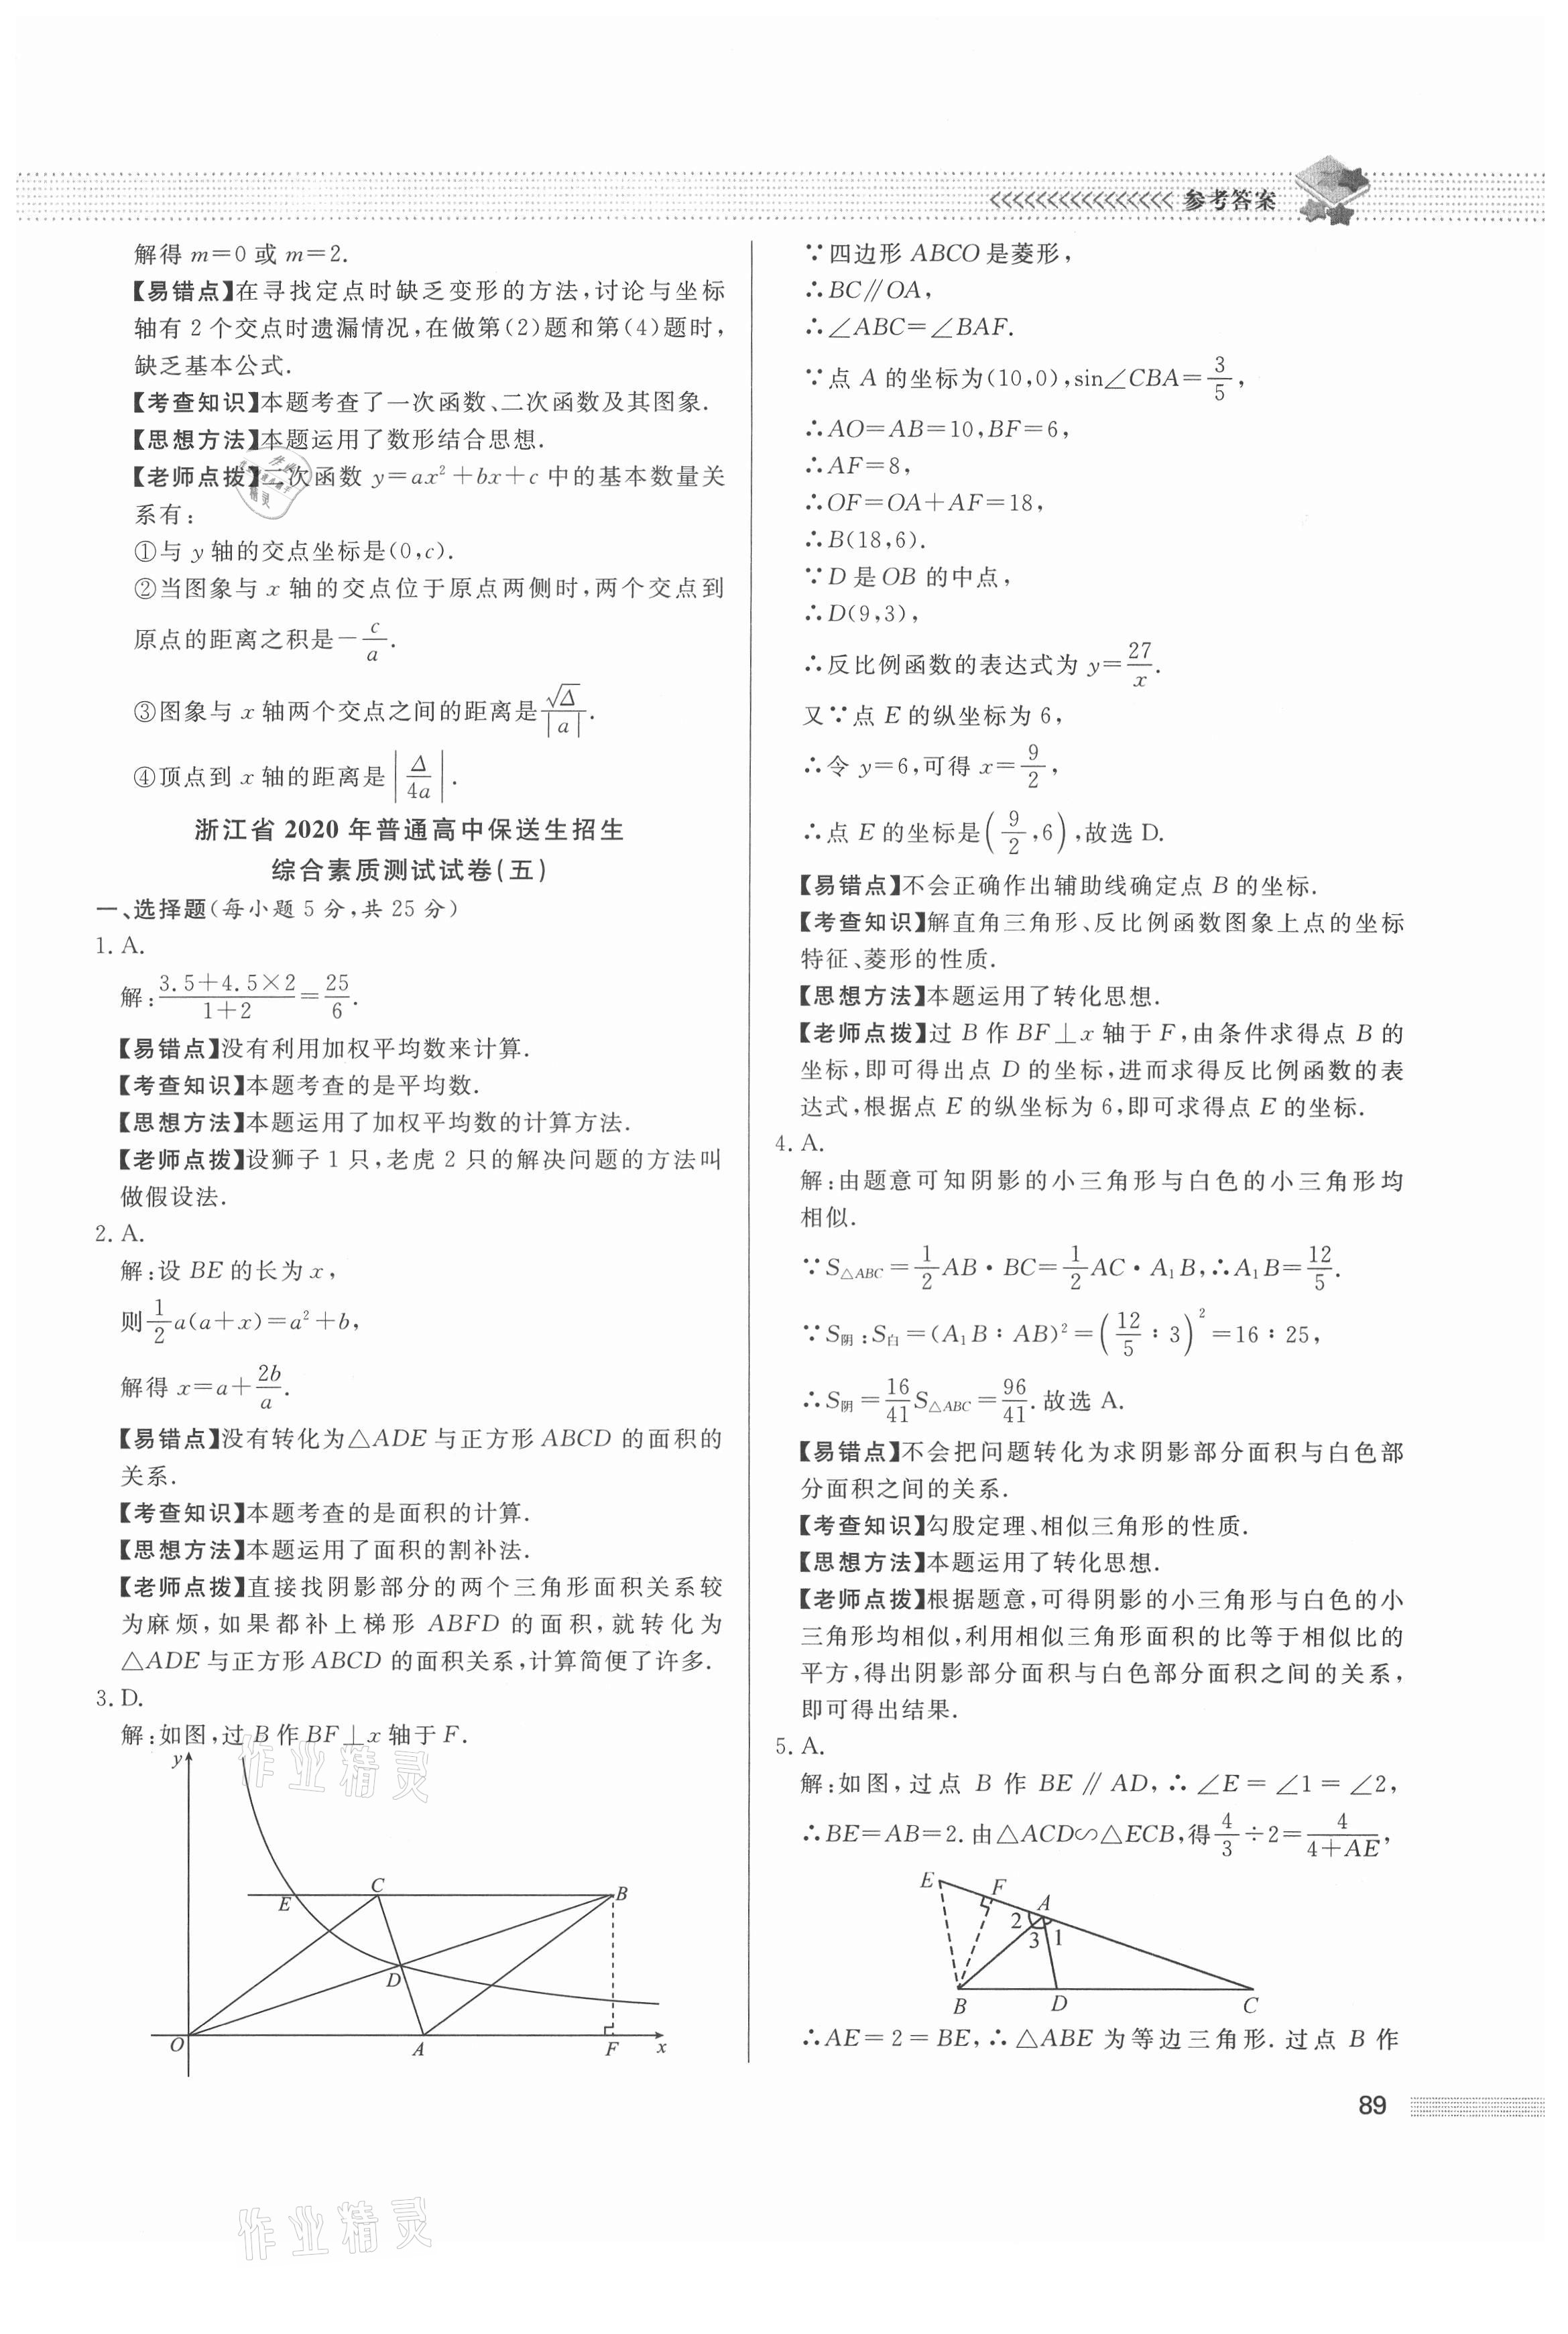 参考答案
解得 m=0 或 m=2.
【易错点】在寻找定点时缺乏变形的方法,讨论与坐标
轴有 2 个交点时遗漏情况,在做第(2)题和第(4)题时,
缺乏基本公式.
【考查知识】本题考查了一次函数、二次函数及其图象.
【思想方法】本题运用了数形结合思想.
【老师点拨】二次函数 y=ax²+bx+c 中的基本数量关
系有:
①与 y 轴的交点坐标是(0,c).
②当图象与 x 轴的交点位于原点两侧时,两个交点到
原点的距离之积是-c/a.
③图象与 x 轴两个交点之间的距离是√Δ/|a|.
④顶点到 x 轴的距离是|Δ/4a|.
浙江省 2020 年普通高中保送生招生
综合素质测试试卷(五)
一、选择题(每小题 5 分,共 25 分)
1. A.
解:(3.5+4.5×2)/(1+2)=25/6.
【易错点】没有利用加权平均数来计算.
【考查知识】本题考查的是平均数.
【思想方法】本题运用了加权平均数的计算方法.
【老师点拨】设狮子 1 只,老虎 2 只的解决问题的方法叫
做假设法.
2. A.
解:设 BE 的长为 x,
则 1/2 a(a+x)=a²+b,
解得 x=a+2b/a.
【易错点】没有转化为△ADE 与正方形 ABCD 的面积的
关系.
【考查知识】本题考查的是面积的计算.
【思想方法】本题运用了面积的割补法.
【老师点拨】直接找阴影部分的两个三角形面积关系较
为麻烦,如果都补上梯形 ABFD 的面积,就转化为
△ADE 与正方形 ABCD 的面积关系,计算简便了许多.
3. D.
解:如图,过 B 作 BF⊥x 轴于 F.
y
C
E
B
D
O
A
F
x
∵四边形 ABCO 是菱形,
∴BC∥OA,
∴∠ABC=∠BAF.
∵点 A 的坐标为(10,0),sin∠CBA=3/5,
∴AO=AB=10,BF=6,
∴AF=8,
∴OF=OA+AF=18,
∴B(18,6).
∵D 是 OB 的中点,
∴D(9,3),
∴反比例函数的表达式为 y=27/x.
又∵点 E 的纵坐标为 6,
∴令 y=6,可得 x=9/2,
∴点 E 的坐标是(9/2,6),故选 D.
【易错点】不会正确作出辅助线确定点 B 的坐标.
【考查知识】解直角三角形、反比例函数图象上点的坐标
特征、菱形的性质.
【思想方法】本题运用了转化思想.
【老师点拨】过 B 作 BF⊥x 轴于 F,由条件求得点 B 的
坐标,即可得出点 D 的坐标,进而求得反比例函数的表
达式,根据点 E 的纵坐标为 6,即可求得点 E 的坐标.
4. A.
解:由题意可知阴影的小三角形与白色的小三角形均
相似.
∵S△ABC=1/2 AB·BC=1/2 AC·A₁B,∴A₁B=12/5.
∵S阴:S白=(A₁B:AB)²=(12/5:3)²=16:25,
∴S阴=16/41 S△ABC=96/41.故选 A.
【易错点】不会把问题转化为求阴影部分面积与白色部
分面积之间的关系.
【考查知识】勾股定理、相似三角形的性质.
【思想方法】本题运用了转化思想.
【老师点拨】根据题意,可得阴影的小三角形与白色的小
三角形均相似,利用相似三角形面积的比等于相似比的
平方,得出阴影部分面积与白色部分面积之间的关系,
即可得出结果.
5. A.
解:如图,过点 B 作 BE∥AD,∴∠E=∠1=∠2,
∴BE=AB=2.由△ACD∽△ECB,得4/3÷2=4/(4+AE),
E
F
A
2
3
1
B
D
C
∴AE=2=BE,∴△ABE 为等边三角形.过点 B 作
89
作业精灵
作业精灵